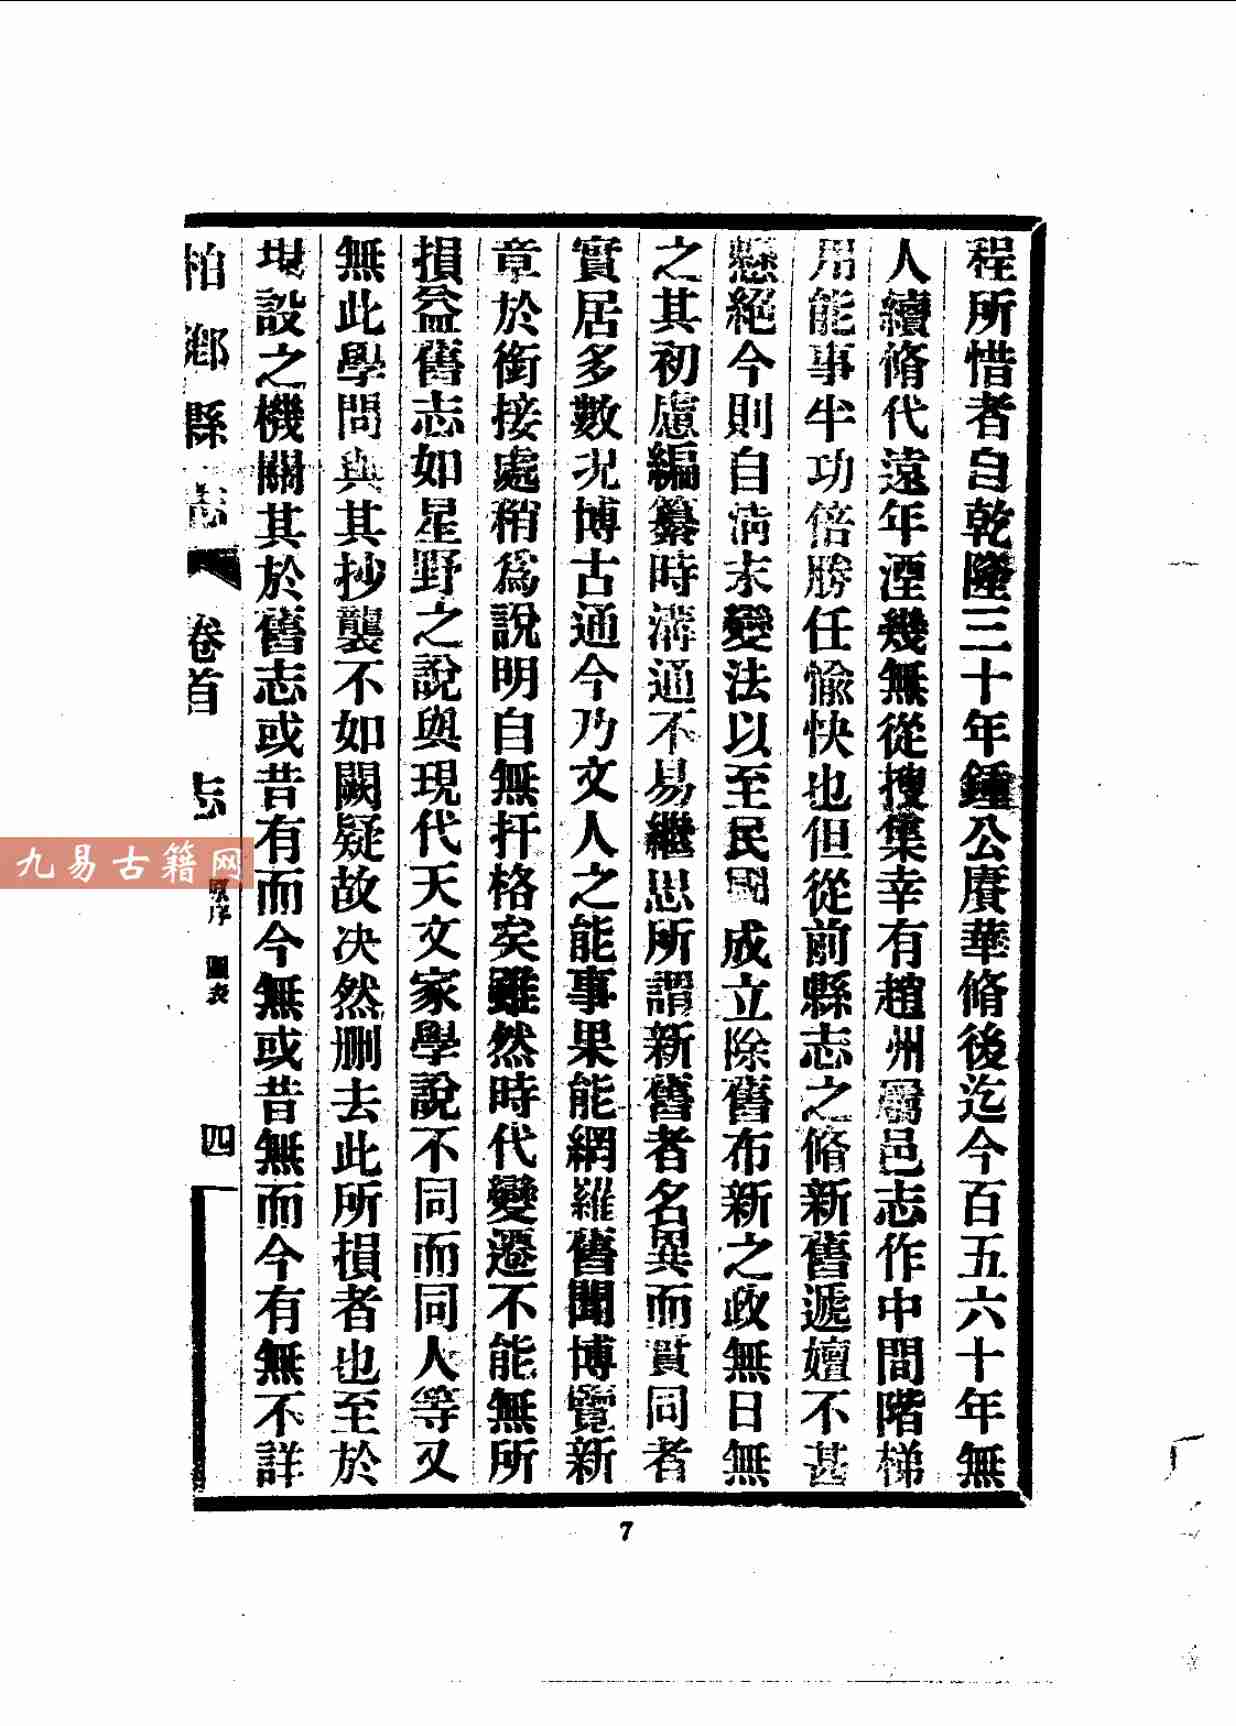 程所惜者自乾隆三十年鍾公賡華脩後迄今百五六十年無
人續脩代遠年湮幾無從搜集幸有趙州屬邑志作中間階梯
用能事半功倍勝任愉快也但從前縣志之脩新舊遞嬗不甚
懸絕今則自淸末變法以至民國成立除舊布新之政無日無
之其初慮編纂時溝通不易繼思所謂新舊者名異而實同者
實居多數况博古通今乃文人之能事果能網羅舊聞博覽新
章於銜接處稍爲說明自無扞格矣雖然時代變遷不能無所
損益舊志如星野之說與現代天文家學說不同而同人等又
無此學問與其抄襲不如闕疑故决然删去此所損者也至於
現設之機關其於舊志或昔有而今無或昔無而今有無不詳
柏鄉縣志 卷首 志 原序 圖表 四
九易古籍网
7